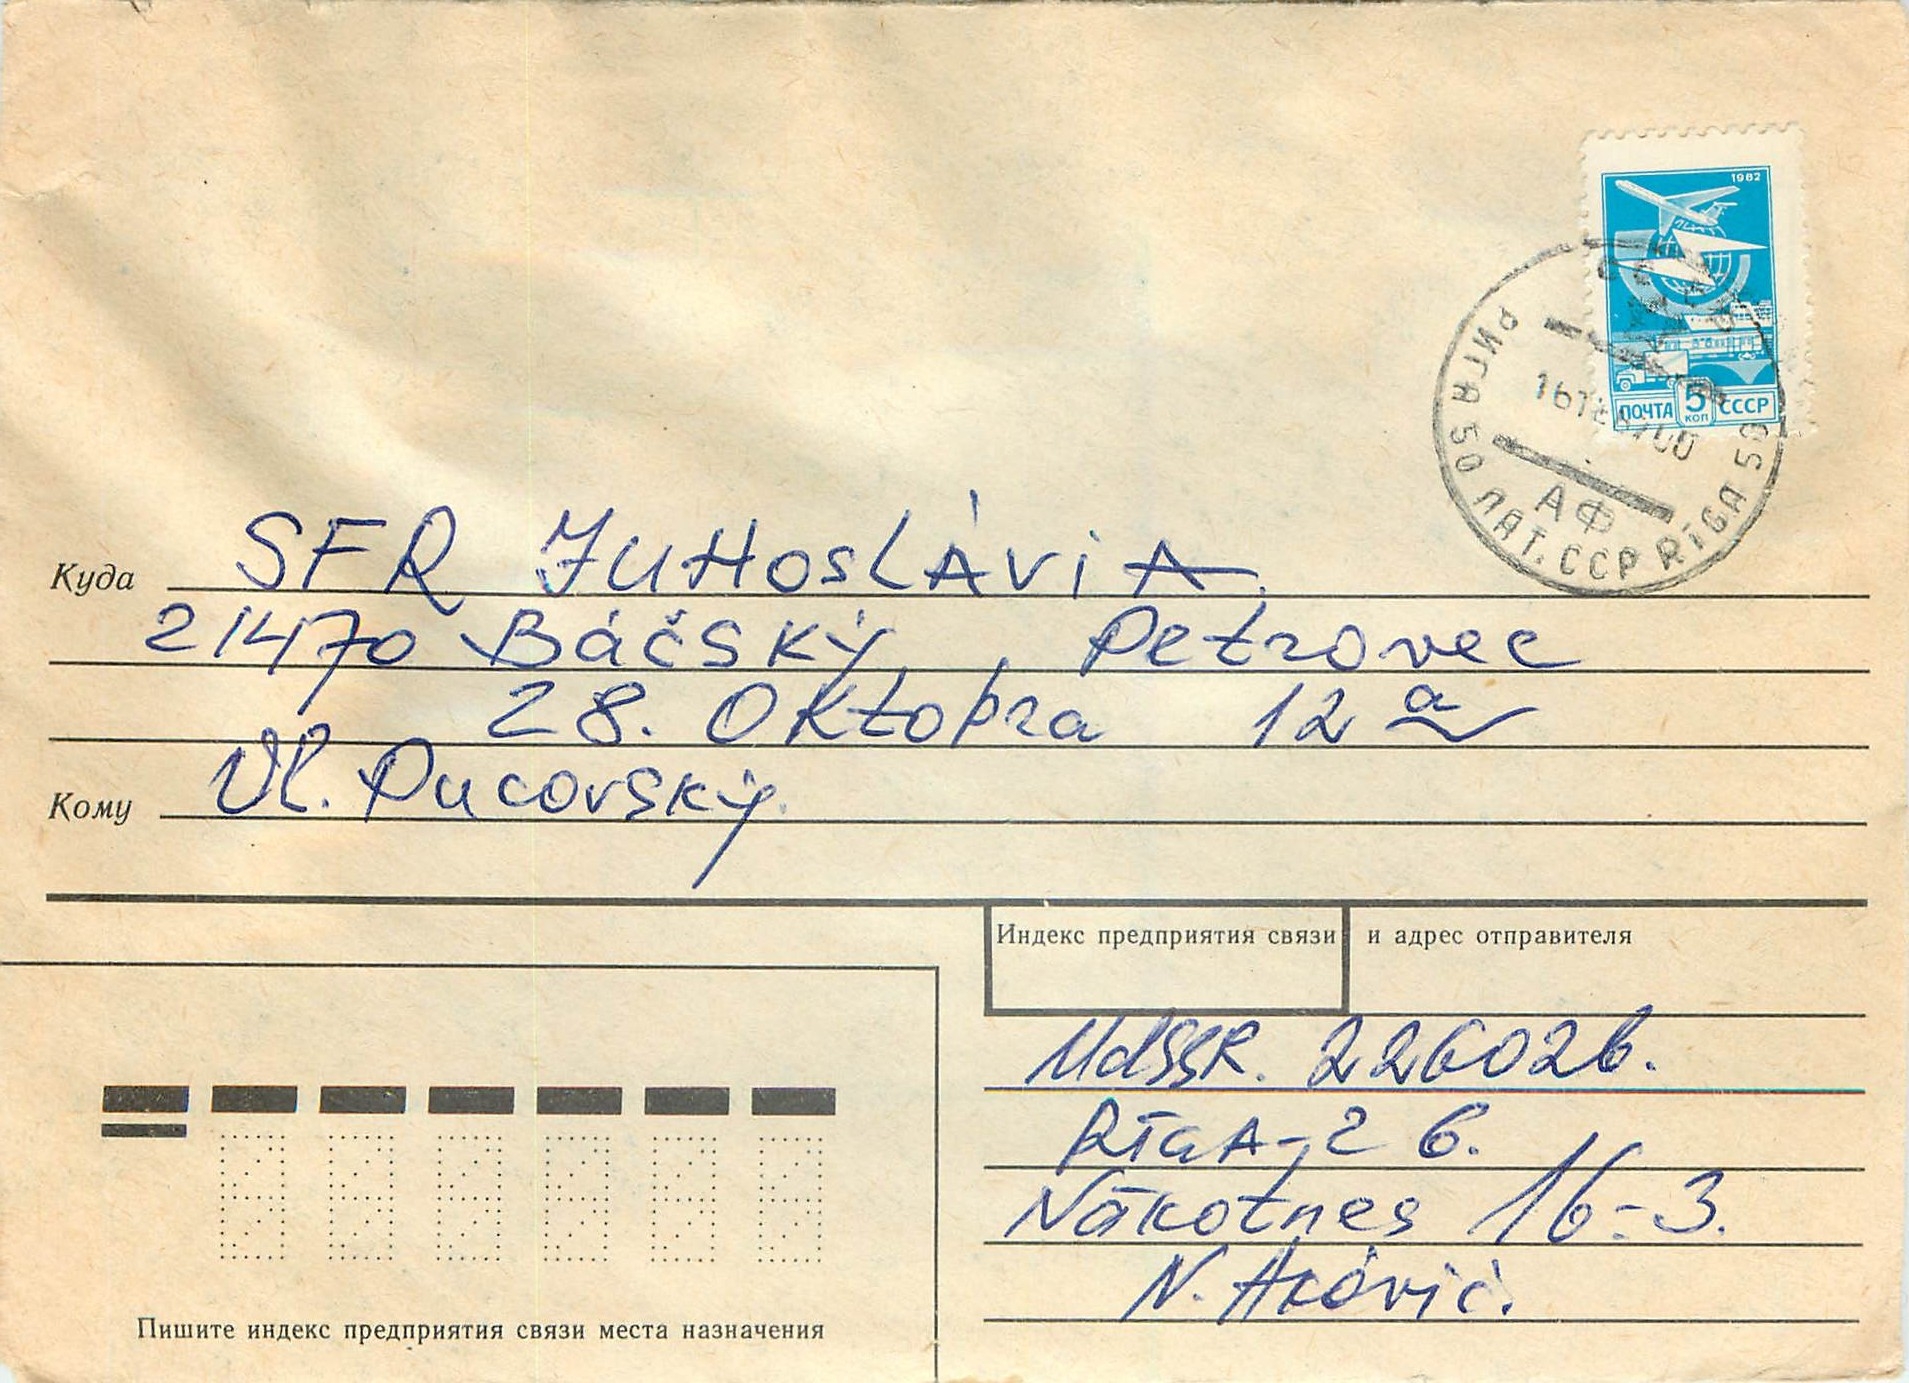 1982
ПОЧТА 5 КОП СССР
РИГА 50 ЛАТ. ССР RĪGA 50
АФ
Куда SFR JUHOSLÁViA
21470 Báčský Petrovec
28. Oktobra 12 a
Кому Vl. Pucovský.
Индекс предприятия связи и адрес отправителя
226026.
RĪGA-26.
Nākotnes 16-3.
N.
Пишите индекс предприятия связи места назначения